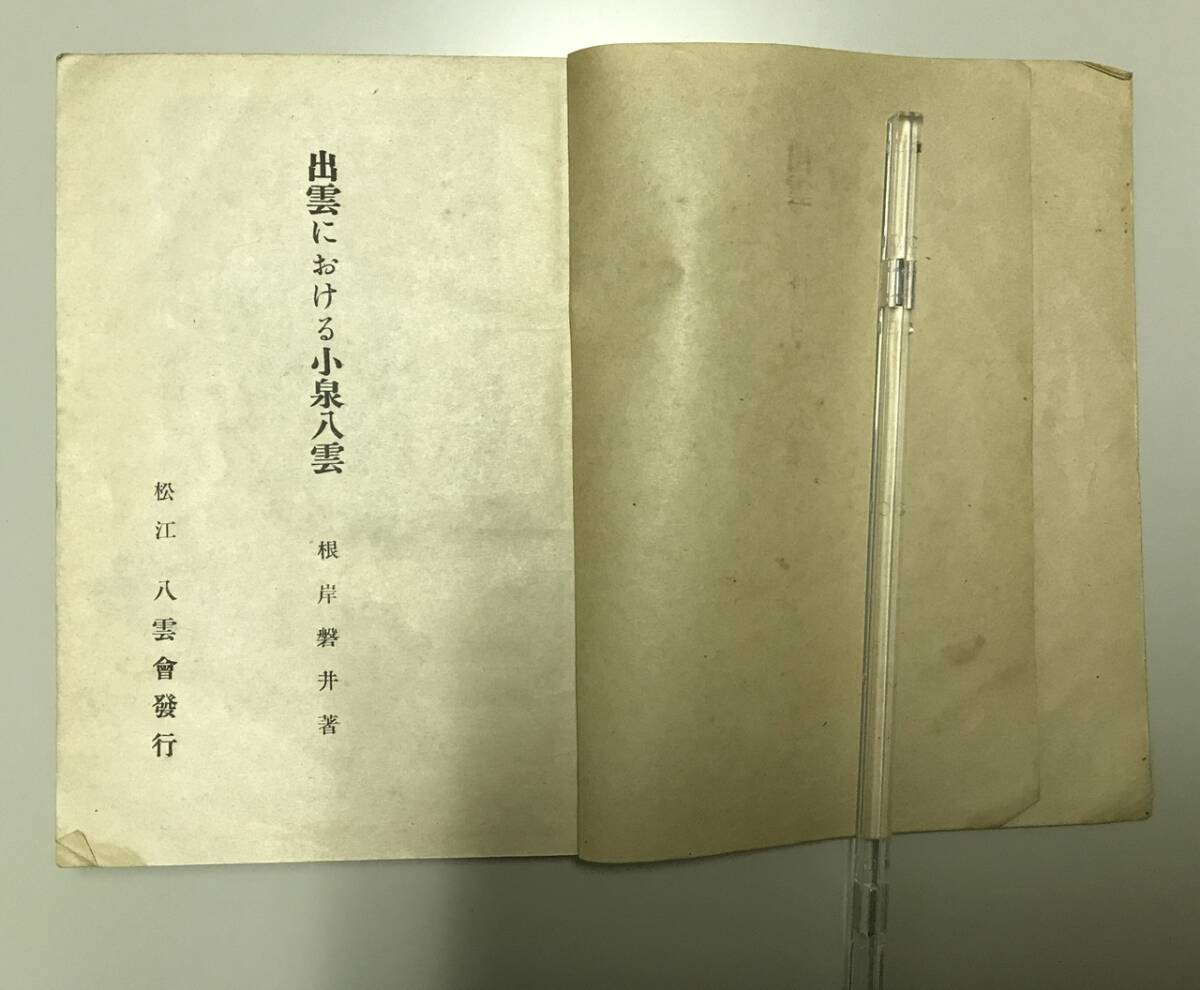 出雲における小泉八雲
根岸磐井著
松江 八雲會發行